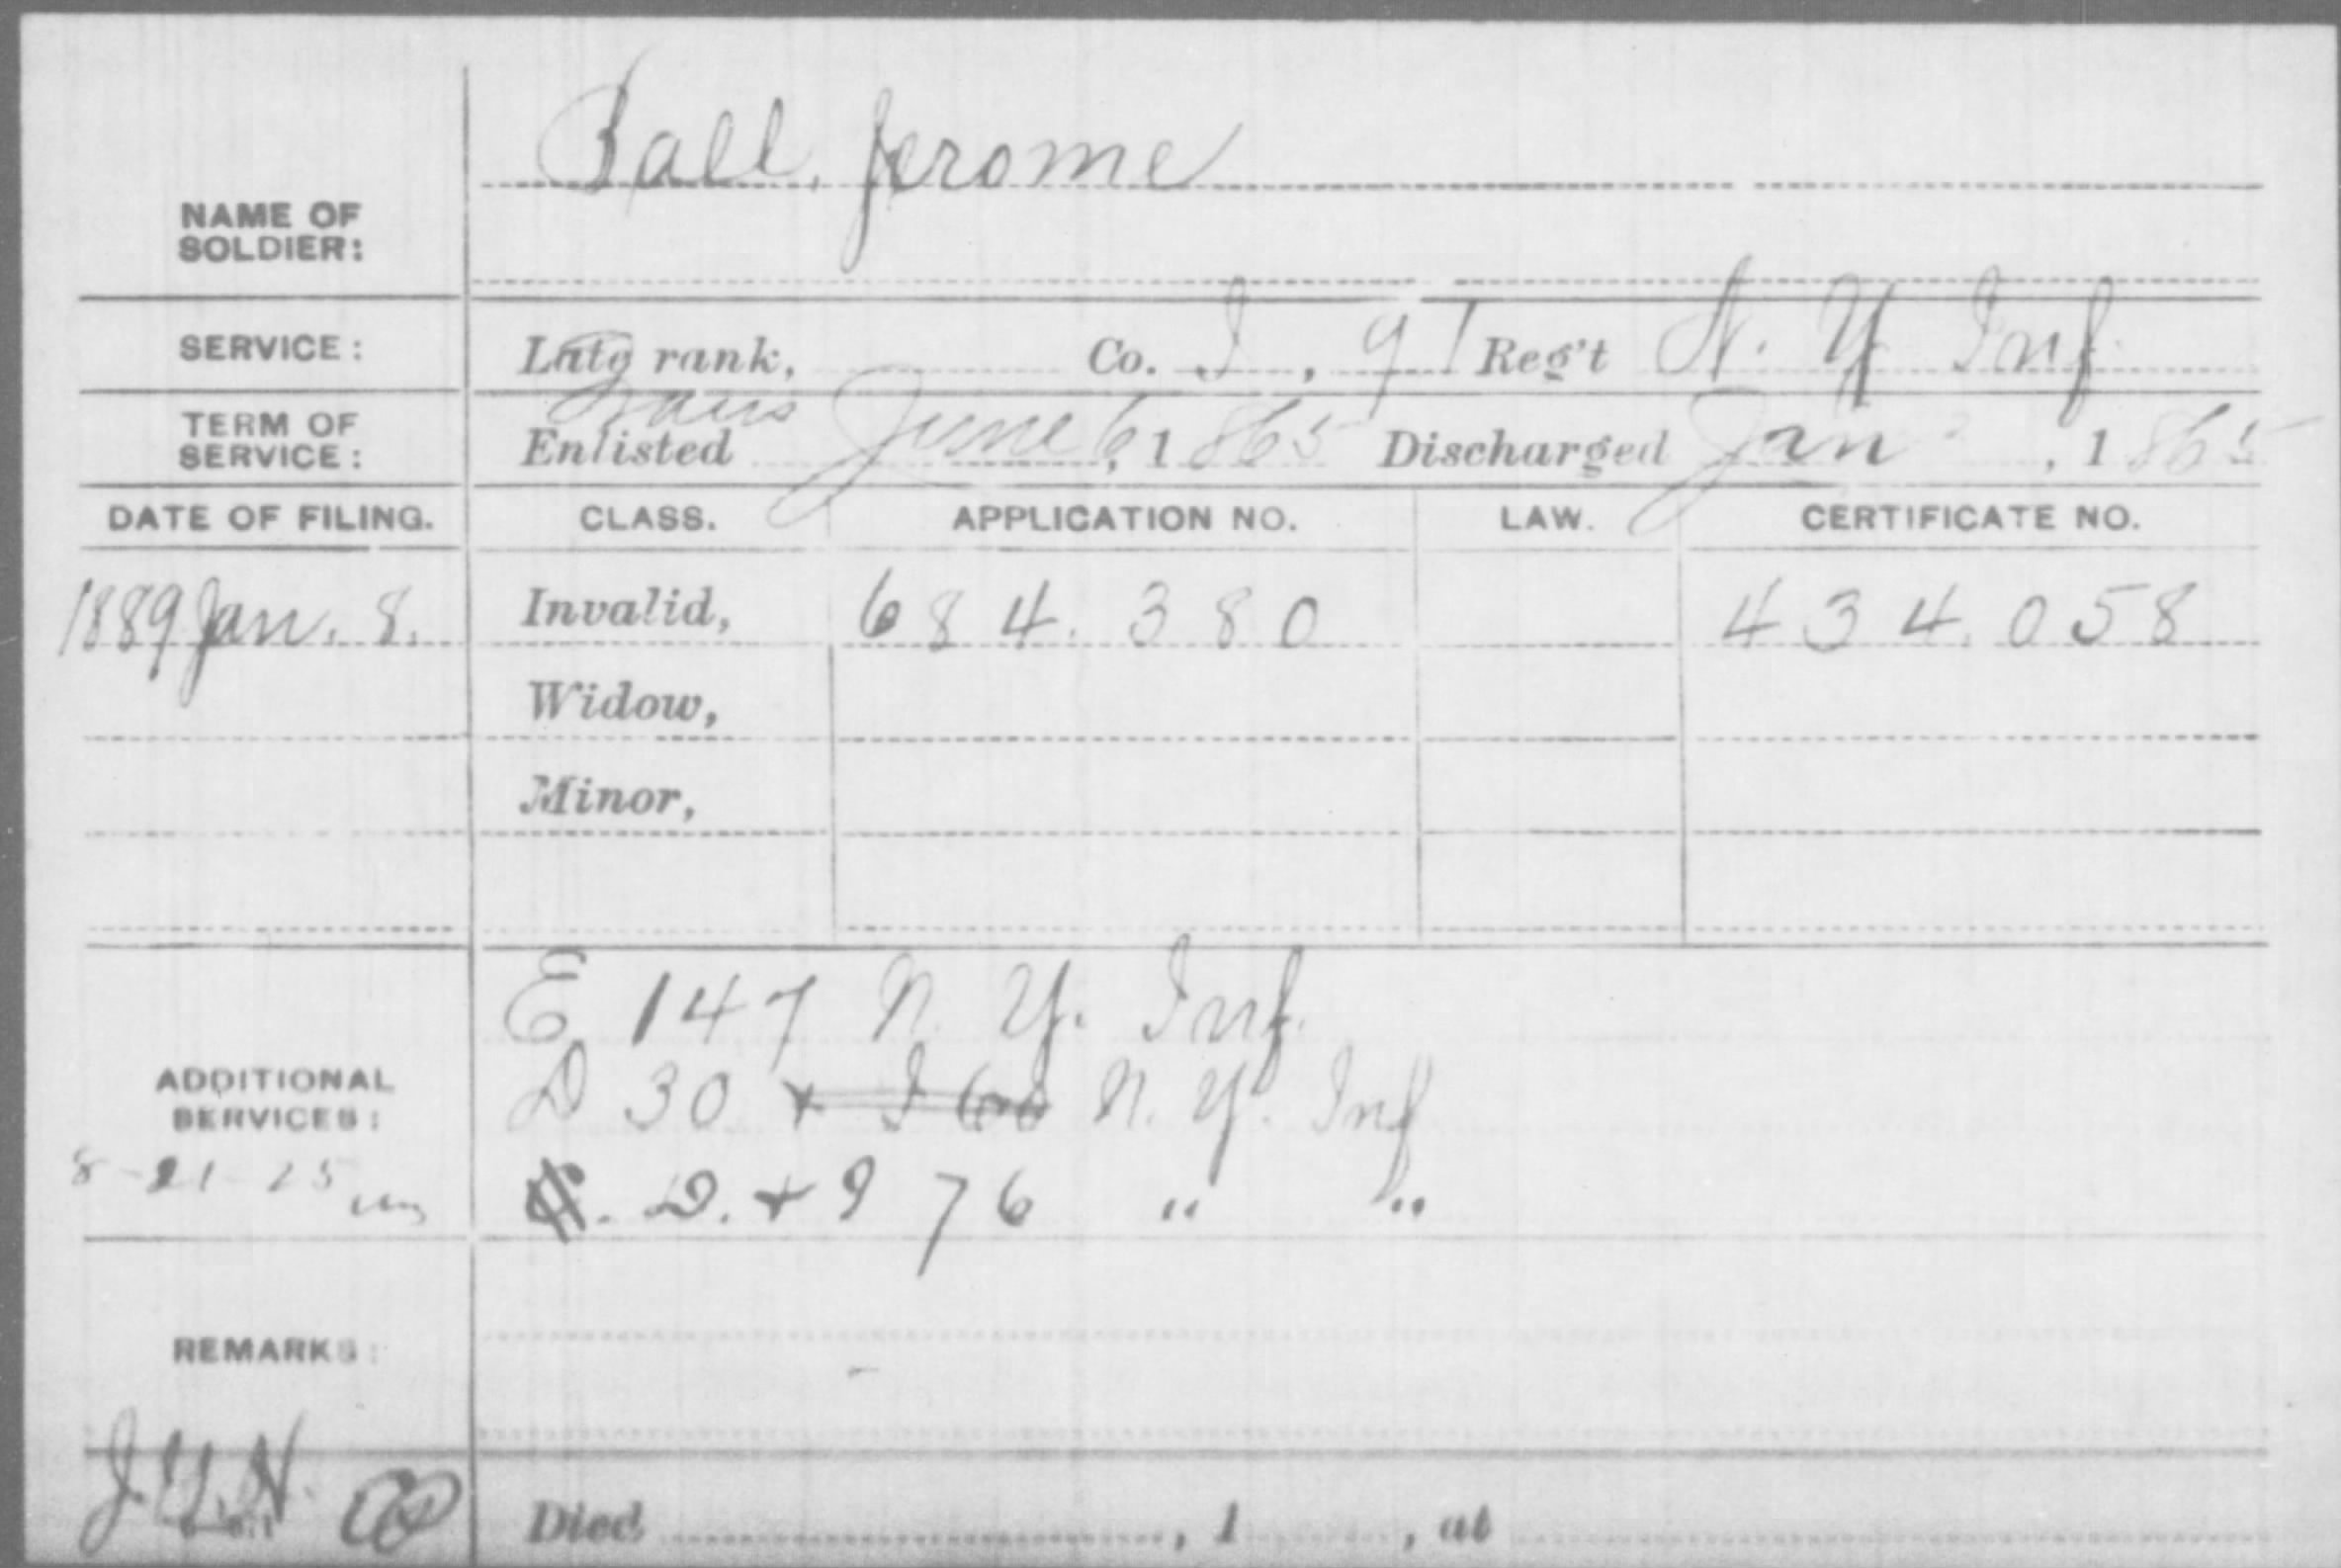 Ball, Jerome
NAME OF
SOLDIER:
SERVICE: Late rank, Co. I, 91 Reg't N. Y. Inf.
Trans
TERM OF
SERVICE: Enlisted June 6, 1865 Discharged Jan , 1865
DATE OF FILING. CLASS. APPLICATION NO. LAW. CERTIFICATE NO.
1889 Jan. 8. Invalid, 684.380 434.058
Widow,
Minor,
E 147 N. Y. Inf.
ADDITIONAL
SERVICES: D 30 + I N. Y. Inf
8-21-25 D. + I 76 " "
REMARKS:
Died , 1 , at